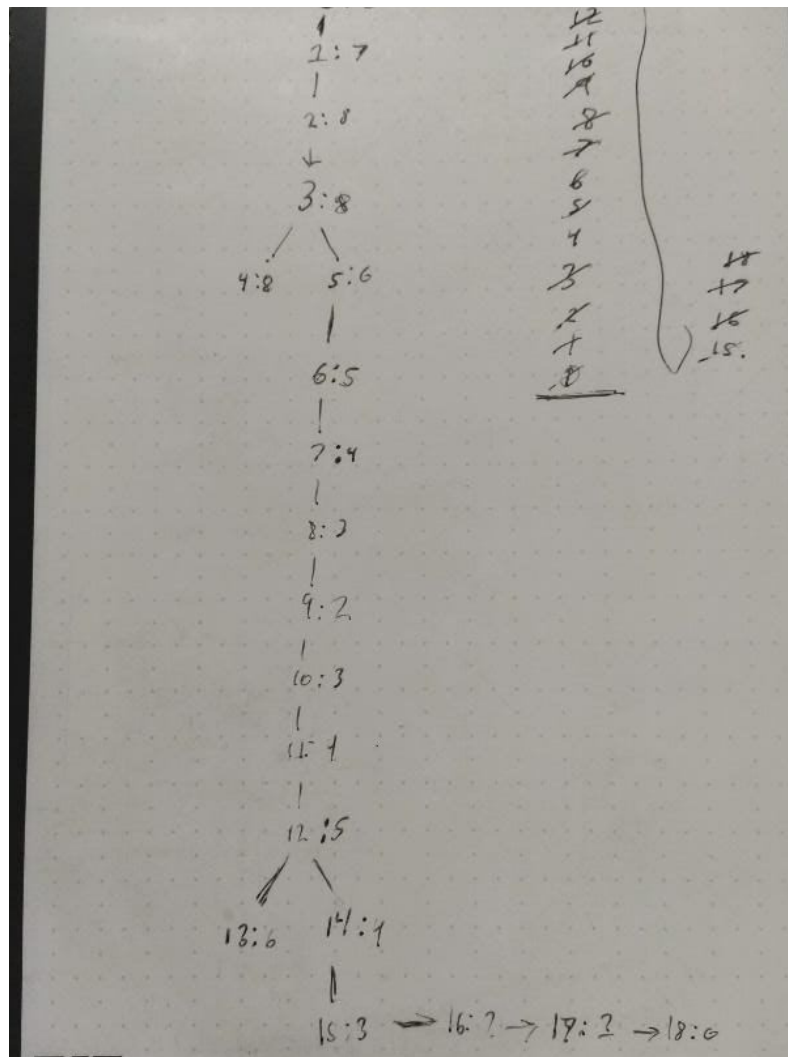 1:7
2:8
3:8
4:8 5:6
6:5
7:4
8:3
9:2
10:3
11:4
12:5
13:6 14:4
15:3 → 16:2 → → 18:0
12
11
10
9
8
7
6
5
4
3
2
1
0
18
17
16
15.